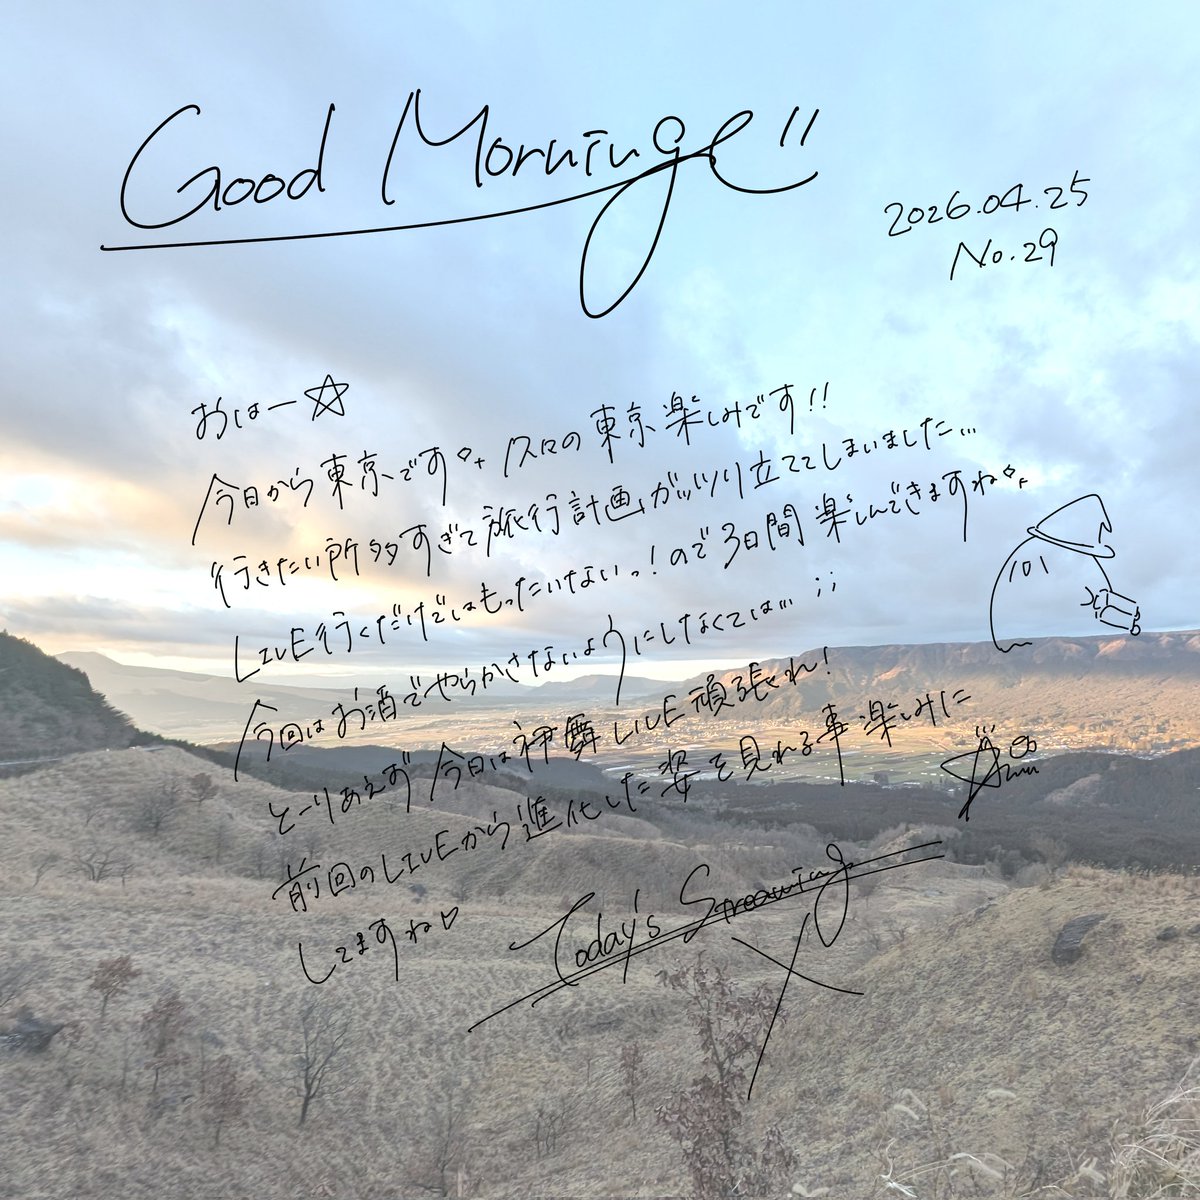 Good Morning!!
2026.04.25
No.29
おはー☆
今日から東京です 久々の東京楽しみです!!
行きたい所多すぎて旅行計画ガッツリ立ててしまいました...
LIVE行くだけではもったいないっ!ので3日間楽しんできますね
今回はお酒でやらかさないようにしなくては... ;;
とーりあえず今日は神舞LIVE頑張れ!
前回のLIVEから進化した姿を見れる事楽しみに
してますね♡
Today's Streaming